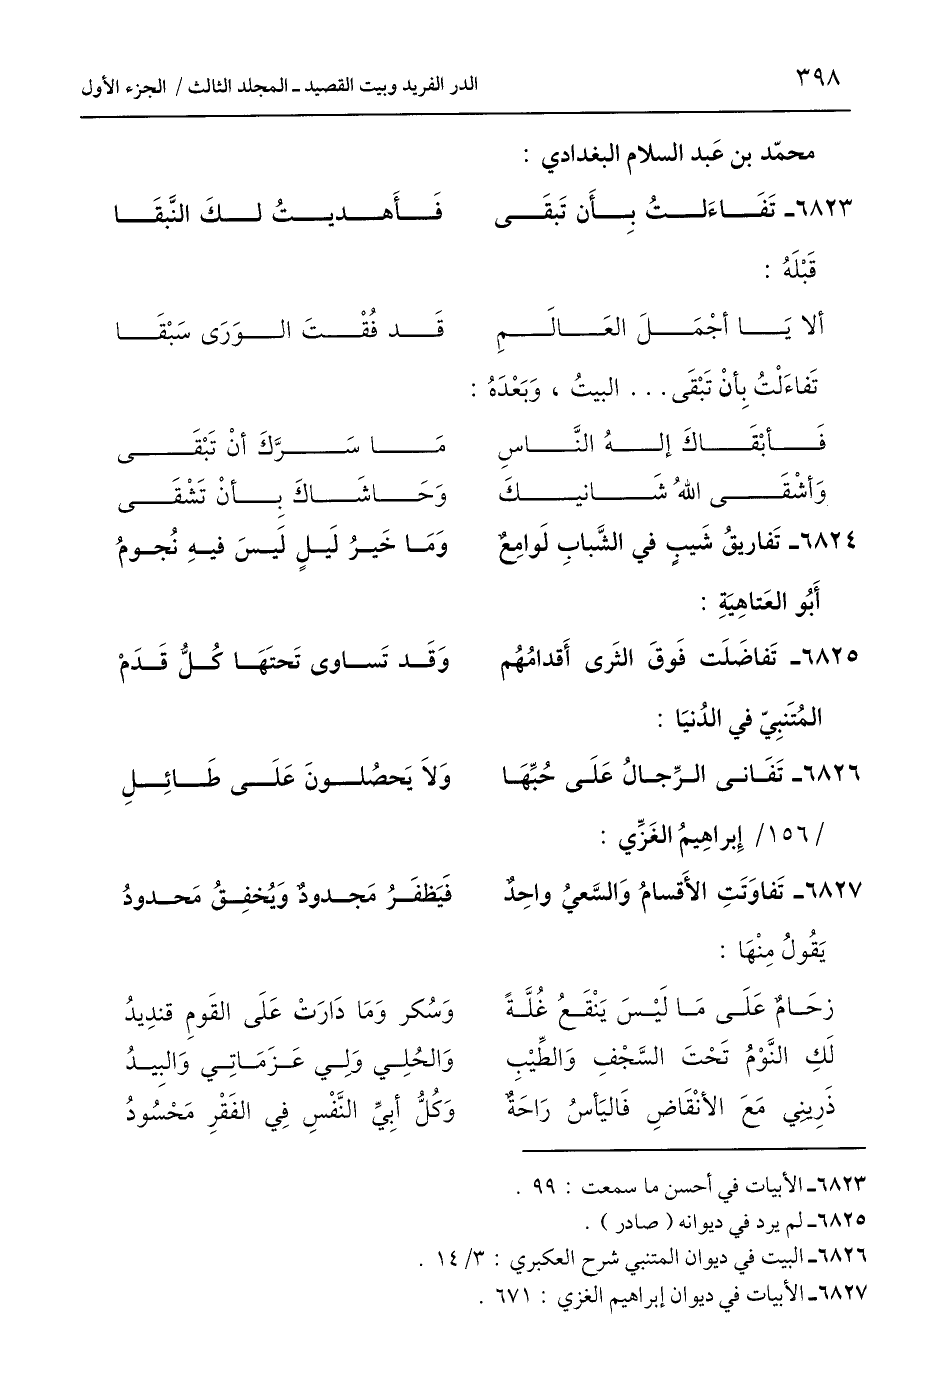 ٣٩٨ الدر الفريد وبيت القصيد ـ المجلد الثالث / الجزء الأول
محمّد بن عَبد السلام البغدادي :
٦٨٢٣ـ تَفَاءَلتُ بِأَن تَبقَى فَأَهديتُ لكَ النَّبقَا
قَبْلَهُ :
ألا يَا أجْمَلَ العَالَمِ قَد فُقْتَ الوَرَى سَبْقَا
تَفاءَلْتُ بِأنْ تَبْقَى . . . البيتُ ، وَبَعْدَهُ :
فَأبْقَاكَ إلهُ النَّاسِ مَا سَرَّكَ أنْ تَبْقَى
وَأشْقَى اللهُ شَانيكَ وَحَاشَاكَ بِأنْ تَشْقَى
٦٨٢٤ـ تَفاريقُ شَيبٍ في الشَّبابِ لَوامِعٌ وَمَا خَيرُ لَيلٍ لَيسَ فيهِ نُجومُ
أَبُو العَتاهِيَةِ :
٦٨٢٥ـ تَفاضَلَت فَوقَ الثَرى أَقدامُهُم وَقَد تَساوى تَحتَهَا كُلُّ قَدَمْ
المُتَنبِيّ في الدُنيَا :
٦٨٢٦ـ تَفَانى الرِّجالُ عَلَى حُبِّهَا وَلاَ يَحصُلونَ عَلَى طَائِلِ
/ ١٥٦/ إبراهِيمُ الغَزِّي :
٦٨٢٧ـ تَفاوَتَتِ الأَقسامُ وَالسَّعيُ واحِدٌ فَيَظفَرُ مَجدودٌ وَيُخفِقُ مَحدودُ
يَقُولُ مِنْهَا :
زحَامٌ عَلَى مَا لَيْسَ يَنْقَعُ غُلَّةً وَسُكر وَمَا دَارَتْ عَلَى القَومِ قنديدُ
لَكِ النَّوْمُ تَحْتَ السَّجْفِ وَالطِّيْبِ وَالحُلِي وَلِي عَزمَاتِي وَالبِيدُ
ذَرِيني مَعَ الأنْقَاضِ فَاليَأسُ رَاحَةٌ وَكُلُّ أبيِّ النَّفْسِ فِي الفَقْرِ مَحْسُودُ
٦٨٢٣ـ الأبيات في أحسن ما سمعت : ٩٩ .
٦٨٢٥ـ لم يرد في ديوانه ( صادر ) .
٦٨٢٦ـ البيت في ديوان المتنبي شرح العكبري : ٣/ ١٤ .
٦٨٢٧ـ الأبيات في ديوان إبراهيم الغزي : ٦٧١ .